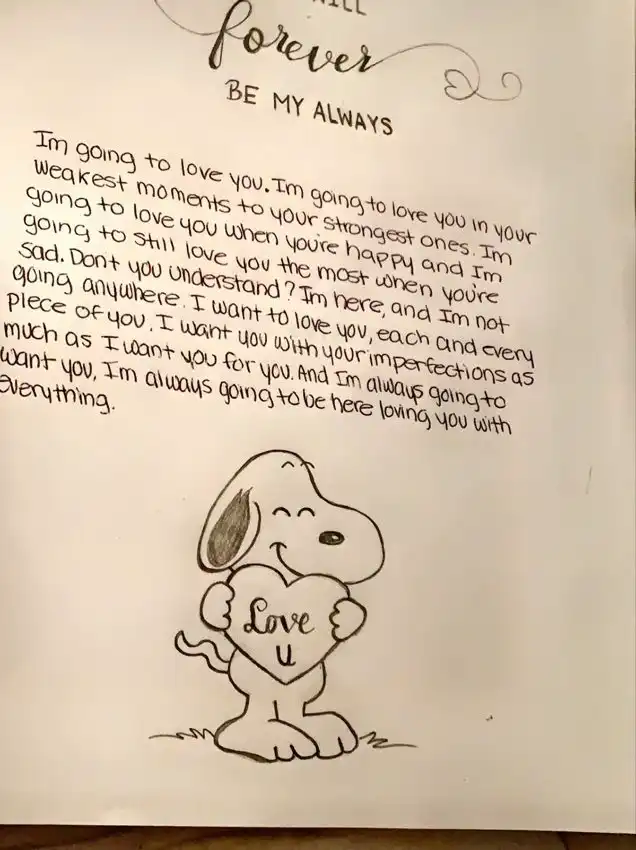 forever
BE MY ALWAYS
Im going to love you. Im going to love you in your
weakest moments to your strongest ones. Im
going to love you when you're happy and Im
going to still love you the most when you're
sad. Dont you understand? Im here, and Im not
going anywhere. I want to love you, each and every
piece of you. I want you with your imperfections as
much as I want you for you. And Im always going to
want you, Im always going to be here loving you with
everything.
Love
U